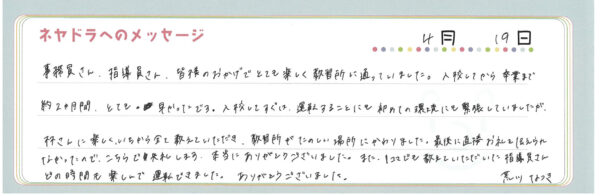 ネヤドラへのメッセージ
4月 19日
事務員さん、指導員さん、皆様のおかげでとても楽しく教習所に通っていました。入校してから卒業まで
約2ヶ月間、とても早かったです。入校してすぐは、運転することにも初めての環境にも緊張していましたが、
林さんに楽しく、いちから全て教えていただき、教習所がたのしい場所にかわりました。最後に直接お礼を伝えられ
なかったので、こちらで失礼します。本当にありがとうございました。また、1コマでも教えていただいた指導員さん
どの時間も楽しんで運転できました。ありがとうございました。 荒川 なつき